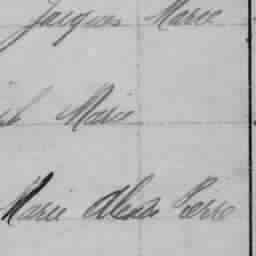 Jacques Marie
Marie
Marie Alexis Pierre